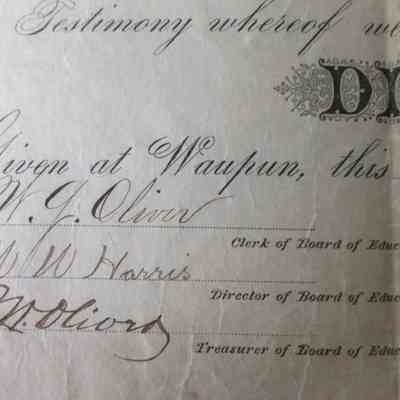 Testimony whereof we
DI
Given at Waupun, this
W. G. Oliver
Clerk of Board of Educ
W Harris
Director of Board of Educ
Treasurer of Board of Educ